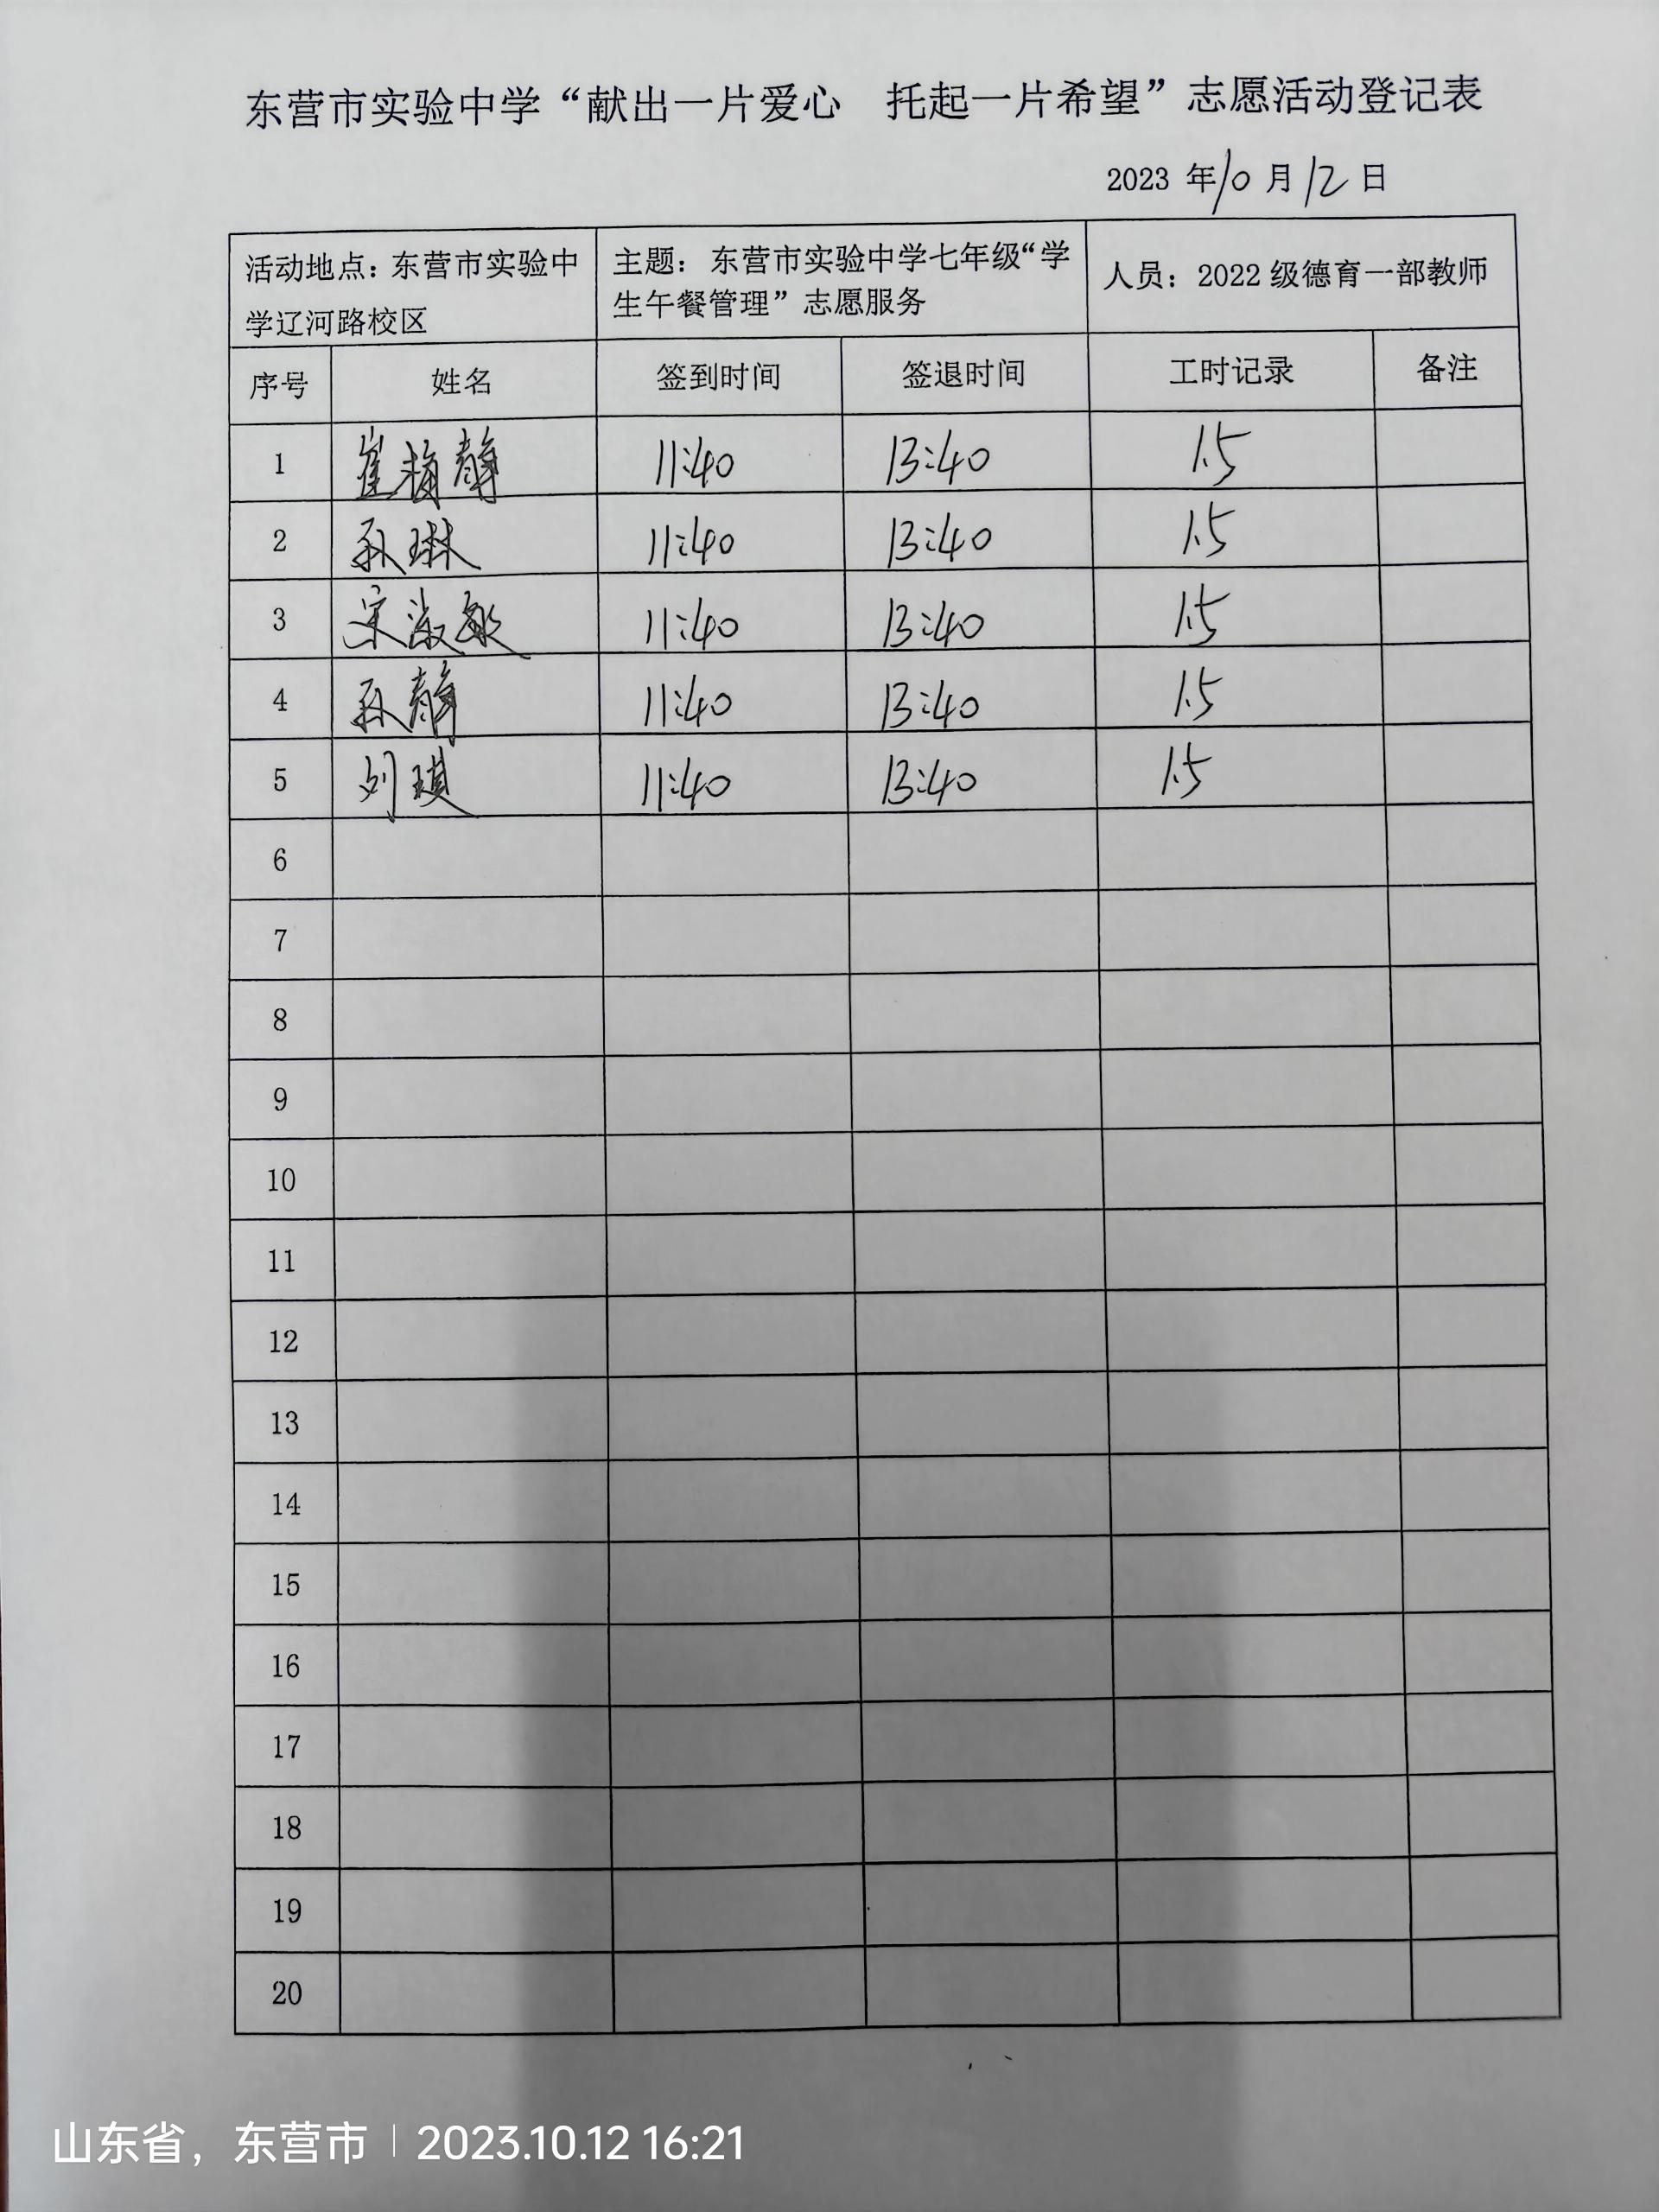 东营市实验中学“献出一片爱心 托起一片希望”志愿活动登记表
2023 年10月12日
活动地点：东营市实验中学辽河路校区 主题： 东营市实验中学七年级“学生午餐管理”志愿服务 人员：2022 级德育一部教师
序号 姓名 签到时间 签退时间 工时记录 备注
1 崔梅静 11:40 13:40 1.5
2 孙琳 11:40 13:40 1.5
3 宋淑敏 11:40 13:40 1.5
4 孙静 11:40 13:40 1.5
5 刘琪 11:40 13:40 1.5
6
7
8
9
10
11
12
13
14
15
16
17
18
19
20
山东省，东营市 | 2023.10.12 16:21